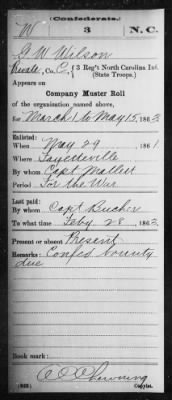 Confederate.
W 3 N.C.
G W Wilson
Private, Co. C, 3 Reg't North Carolina Inf.
(State Troops.)
Appears on
Company Muster Roll
of the organization named above,
for March 1 to May 15, 1863.
Enlisted:
When May 29, 1861
Where Fayetteville
By whom Capt Mallett
Period For the War
Last paid:
By whom Capt Bucher
To what time Feby 28, 1863.
Present or absent Present
Remarks: Confed bounty
due
Book mark:
(642) Copyist.